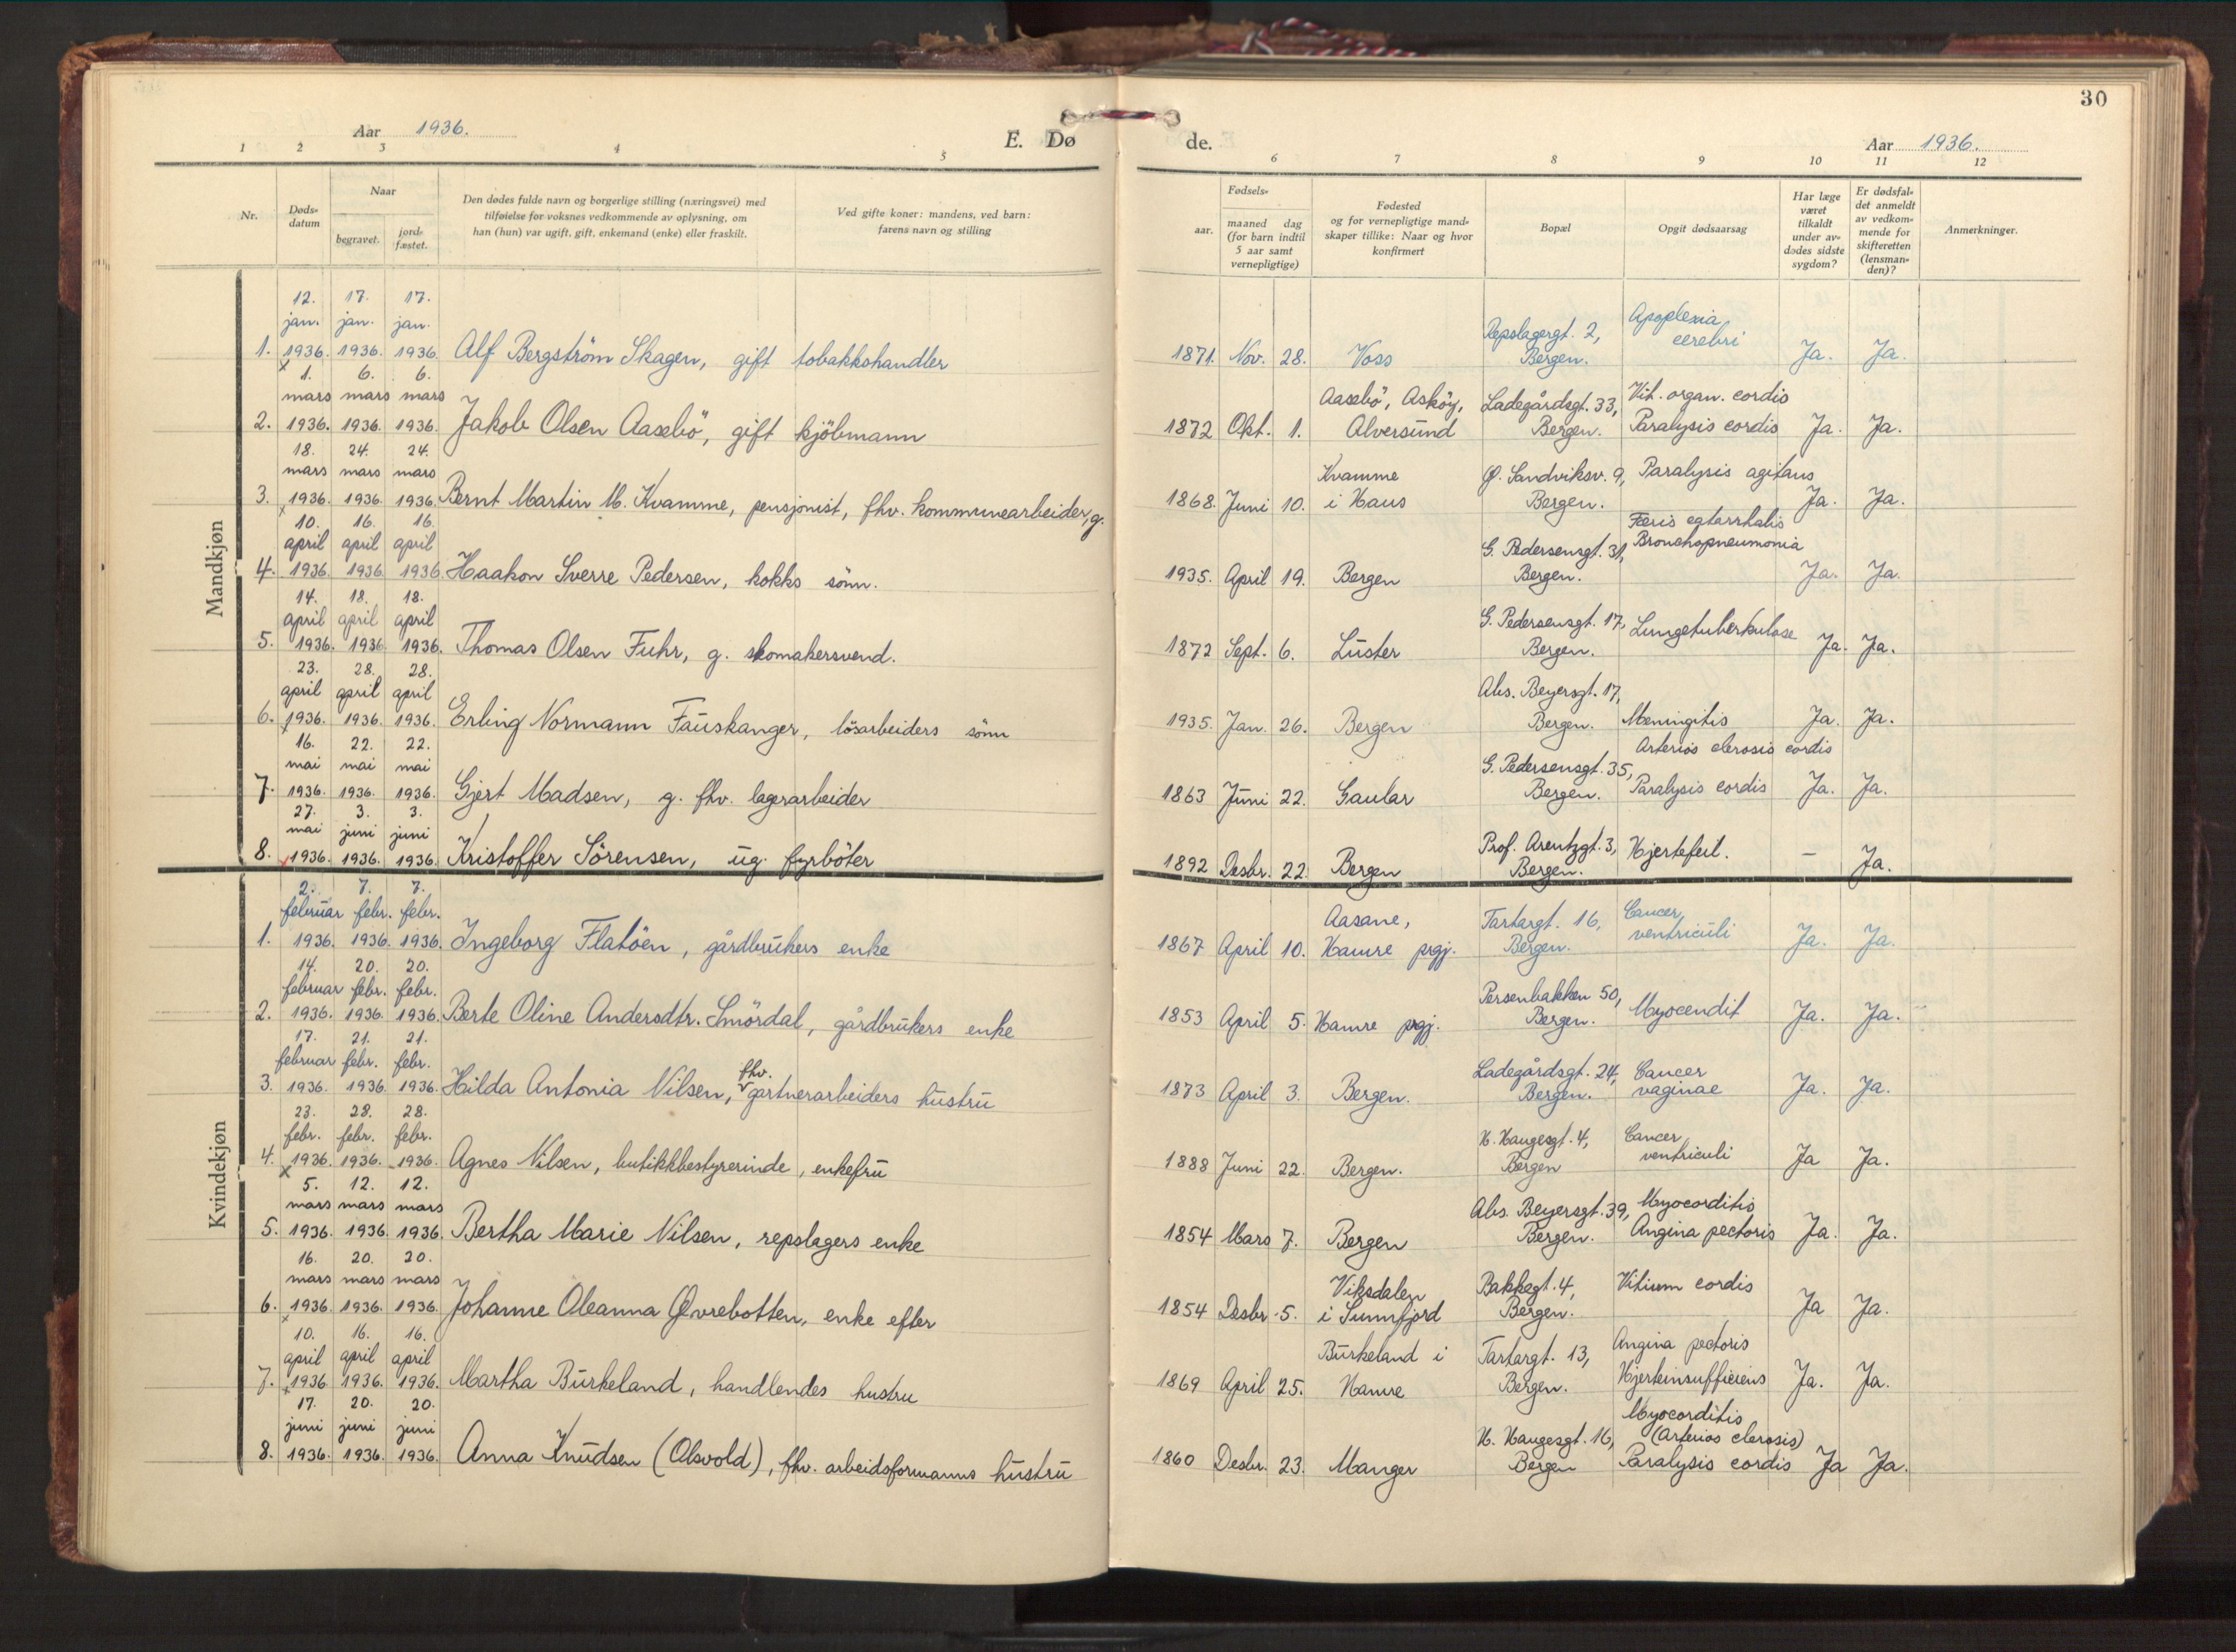 30
Aar 1936.
E. Dø
de.
Aar 1936.
1 2 3 4 5
6 7 8 9 10 11 12
Nr.
Døds-
datum
Naar
begravet.
jord-
fæstet.
Den dødes fulde navn og borgerlige stilling (næringsvei) med
tilføielse for voksnes vedkommende av oplysning, om
han (hun) var ugift, gift, enkemand (enke) eller fraskilt.
Ved gifte koner: mandens, ved barn:
farens navn og stilling
Fødsels-
aar.
maaned dag
(for barn indtil
5 aar samt
vernepligtige)
Fødested
og for vernepligtige mand-
skaper tillike: Naar og hvor
konfirmert
Bopæl
Opgit dødsaarsag
Har læge
været
tilkaldt
under av-
dødes sidste
sygdom?
Er dødsfal-
det anmeldt
av vedkom-
mende for
skifteretten
(lensman-
den)?
Anmerkninger.
Mandkjøn
12. 17. 17.
jan. jan. jan.
1. 1936. 1936. 1936. Alf Bergström Skagen, gift tobakkshandler
1871. Nov. 28. Voss
Repslagergt. 2,
Bergen.
Apoplexia
cerebri
Ja. Ja.
x
1. 6. 6.
mars mars mars
2. 1936. 1936. 1936. Jakob Olsen Aasebö, gift kjöbmann
1872 Okt. 1.
Aasebö, Asköy,
Alversund
Ladegårdsgt. 33,
Bergen.
Vit. organ. cordis
Paralysis cordis
Ja. Ja.
18. 24. 24.
mars mars mars
3. 1936. 1936. 1936. Bernt Martin M. Kvamme, pensjonist, fhv. kommunearbeider, g.
1868. Juni 10.
Kvamme
i Haus
Ø. Sandviksv. 9,
Bergen.
Paralysis agitans
Ja. Ja.
x
10. 16. 16.
april april april
4. 1936. 1936. 1936. Haakon Sverre Pedersen, kokks sönn.
1935. April 19. Bergen
G. Pedersensgt. 31,
Bergen.
catarrhalis
Bronchopneumonia
Ja. Ja.
14. 18. 18.
april april april
5. 1936. 1936. 1936. Thomas Olsen Fuhr, g. skomakersvend.
1872 Sept. 6. Luster
G. Pedersensgt. 17,
Bergen.
Lungetuberkulose
Ja. Ja.
23. 28. 28.
april april april
6. 1936. 1936. 1936. Erling Normann Fauskanger, lösarbeiders sönn
1935. Jan. 26. Bergen
Abs. Beyersgt. 17,
Bergen.
Meningitis
Ja. Ja.
x
16. 22. 22.
mai mai mai
7. 1936. 1936. 1936. Gjert Madsen, g. fhv. lagerarbeider
1863 Juni 22. Gaular
G. Pedersensgt. 35,
Bergen.
Arterios clerosis cordis
Paralysis cordis
Ja. Ja.
27. 3. 3.
mai juni juni
8. 1936. 1936. 1936. Kristoffer Sörensen, ug. fyrböter
1892 Desbr. 22. Bergen
Prof. Arentzgt. 3,
Bergen.
Hjertefeil.
– Ja.
Kvindekjøn
2. 7. 7.
februar febr. febr.
1. 1936. 1936. 1936. Ingeborg Flatöen, gårdbrukers enke
1867 April 10.
Aasane,
Hamre prgj.
Tartargt. 16,
Bergen.
Cancer
ventriculi
Ja. Ja.
14. 20. 20.
februar febr. febr.
2. 1936. 1936. 1936. Berte Oline Andersdtr. Smördal, gårdbrukers enke
1853 April 5. Hamre prgj.
Persenbakken 50,
Bergen.
Myocendit
Ja. Ja.
17. 21. 21.
februar febr. febr.
3. 1936. 1936. 1936. Hilda Antonia Nilsen, fhv. gartnerarbeiders hustru
1873 April 3. Bergen.
Ladegårdsgt. 24,
Bergen.
Cancer
vaginae
Ja. Ja.
23. 28. 28.
febr. febr. febr.
4. 1936. 1936. 1936. Agnes Nilsen, butikkbestyrerinde, enkefru
1888 Juni 22. Bergen.
H. Haugesgt. 4,
Bergen
Cancer
ventriculi
Ja Ja.
x
5. 12. 12.
mars mars mars
5. 1936. 1936. 1936. Bertha Marie Nilsen, repslagers enke
1854 Mars 7. Bergen
Abs. Beyersgt. 39,
Bergen.
Myocorditis
Angina pectoris
Ja. Ja.
16. 20. 20.
mars mars mars
6. 1936. 1936. 1936. Johanne Oleanna Øvrebotten, enke efter
1854 Desbr. 5.
Viksdalen
i Sunnfjord
Bakkegt. 4,
Bergen.
Vitium cordis
Ja Ja.
x
10. 16. 16.
april april april
7. 1936 1936. 1936. Martha Burkeland, handlendes hustru
1869 April 25.
Burkeland i
Hamre
Tartargt. 13,
Bergen.
Angina pectoris
Hjerteinsufficiens
Ja. Ja.
x
17. 20. 20.
juni juni juni
8. 1936. 1936. 1936. Anna Knudsen (Olsvold), fhv. arbeidsformanns hustru
1860 Desbr. 23. Manger
H. Haugesgt. 16,
Bergen
Myocorditis
(Arterios clerosis)
Paralysis cordis
Ja Ja.